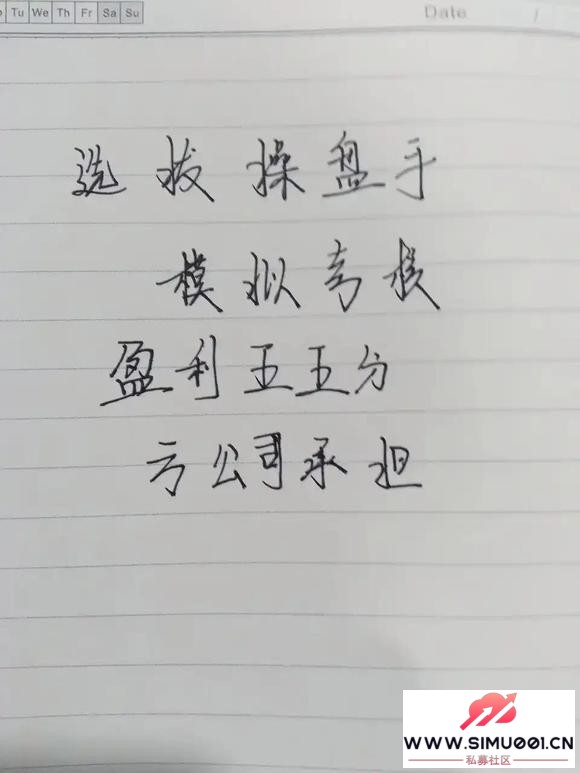 Tu We Th Fr Sa Su
Date /
选拔操盘手
模拟考核
盈利五五分
亏公司承担
WWW.SIMU001.CN
私募社区